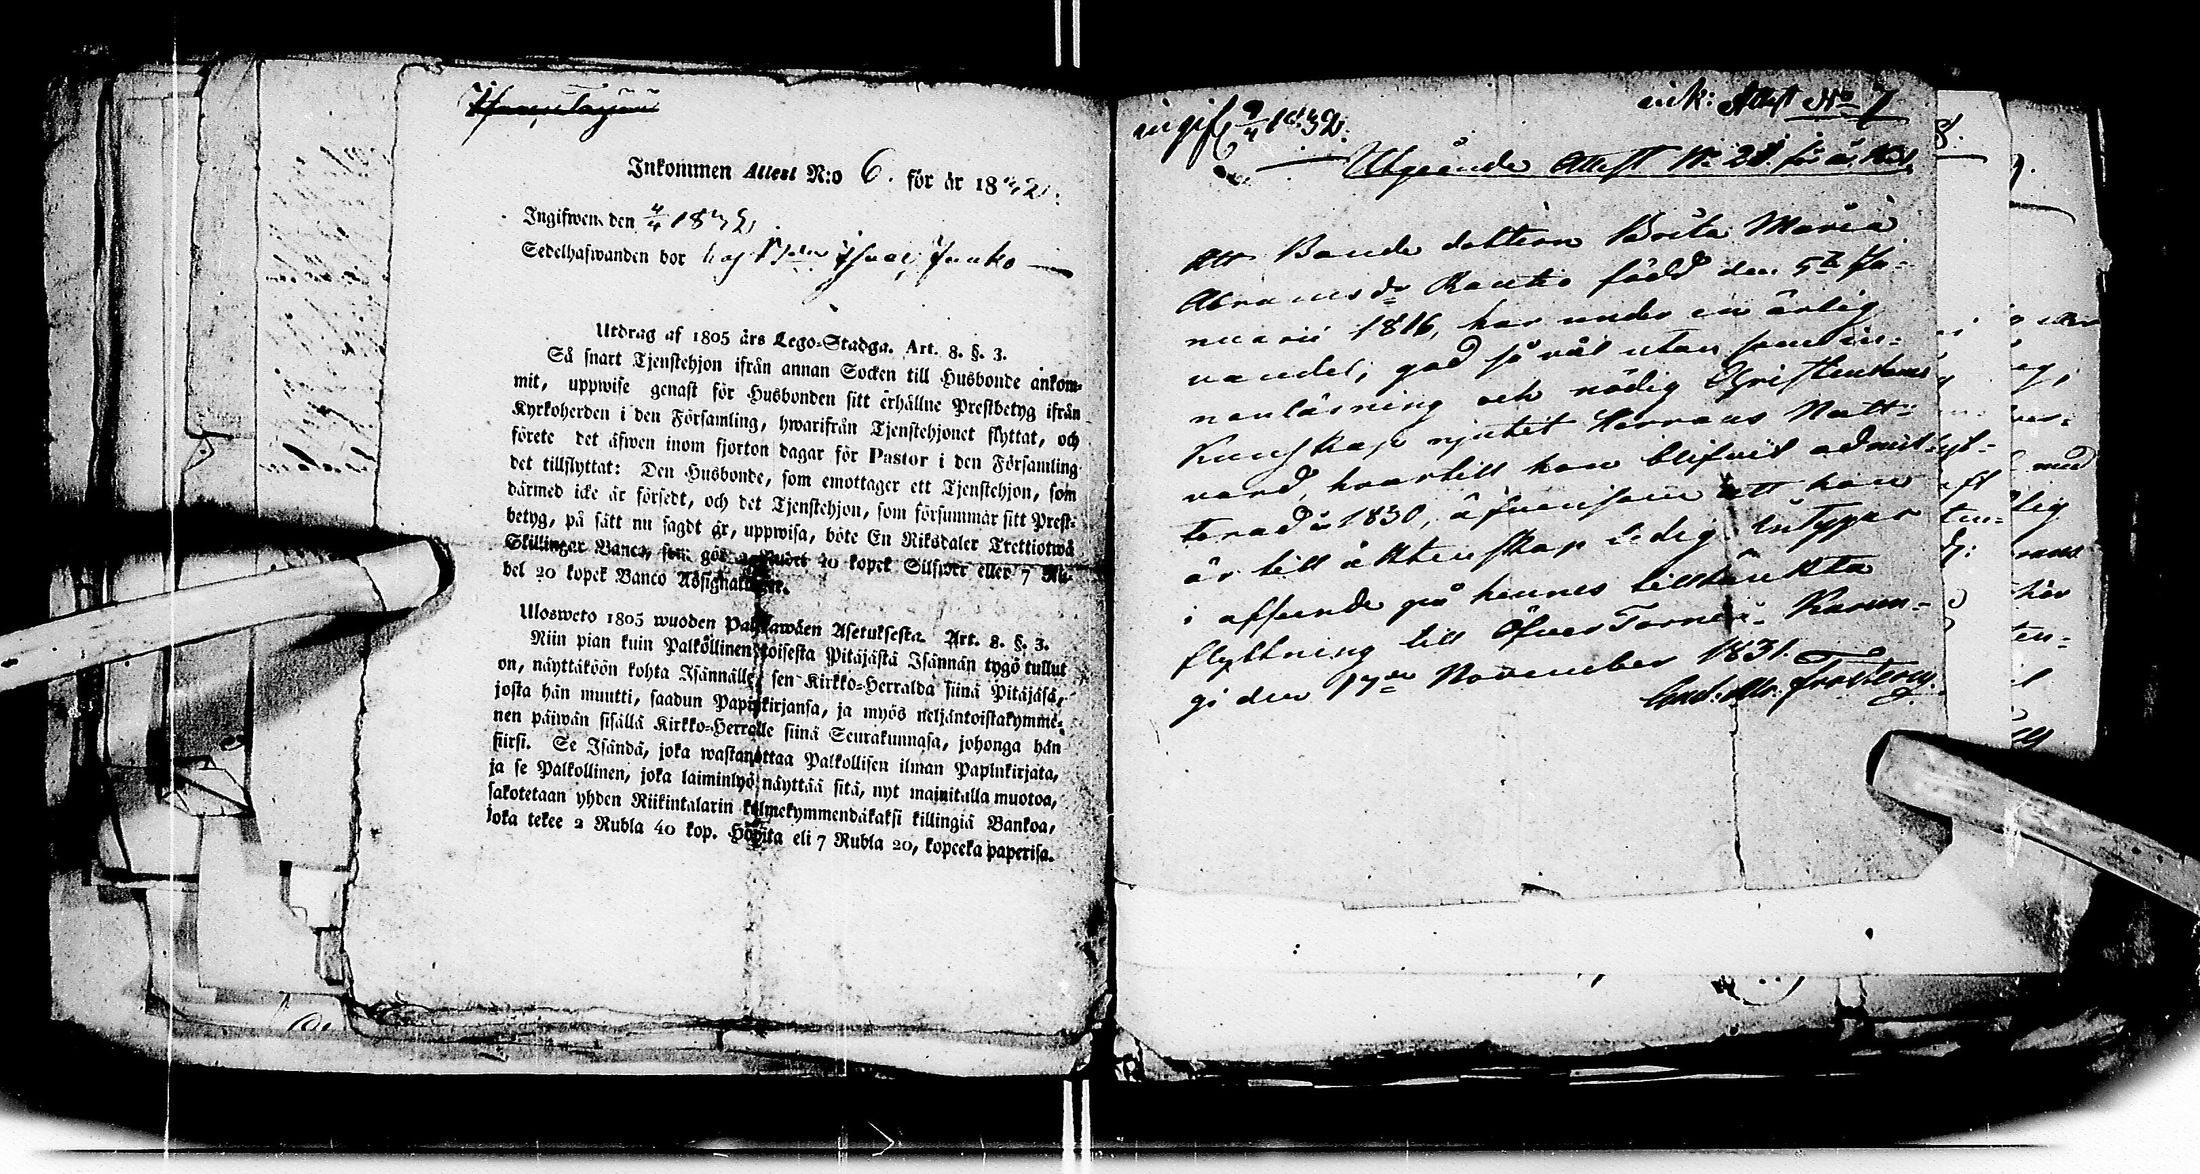 Inkommen Attest N:o 6. för år 1832.
Ingifwen den 4/4 1832
Sedelhafwanden bor hos
Utdrag af 1805 års Lego-Stadga. Art. 8. §. 3.
Så snart Tjenstehjon ifrån annan Socken till Husbonde ankom-
mit, uppwise genast för Husbonden sitt erhållne Prestbetyg ifrån
Kyrkoherden i den Församling, hwarifrån Tjenstehjonet flyttat, och
förete det äfwen inom fjorton dagar för Pastor i den Församling
det tillflyttat: Den Husbonde, som emottager ett Tjenstehjon, som
därmed icke är försedt, och det Tjenstehjon, som försummar sitt Prest-
betyg, på sätt nu sagdt är, uppwisa, böte En Riksdaler Trettiotwå
Skillingar Banco, som gör 2 Rubel 40 kopek Silfwer eller 7 Ru-
bel 20 kopek Banco Assignationer.
Ulosweto 1805 wuoden Palkawäen Asetuksesta. Art. 8. §. 3.
Niin pian kuin Palkollinen toisesta Pitäjästä Isännän tygö tullut
on, näyttäköön kohta Isännälle, sen Kirkko-Herralda siinä Pitäjäsä,
josta hän muutti, saadun Papinkirjansa, ja myös neljäntoistakymme-
nen päiwän sisällä Kirkko-Herralle siinä Seurakunnasa, johonga hän
siirsi. Se Isändä, joka wastanottaa Palkollisen ilman Papinkirjata,
ja se Palkollinen, joka laiminlyö näyttää sitä, nyt mainitulla muotoa,
sakotetaan yhden Riikintalarin kolmekymmendäkaksi killingiä Bankoa,
joka tekee 2 Rubla 40 kop. Hopita eli 7 Rubla 20, kopeeka paperisa.
ink: Attest No 7
ingif. 9/4 1832.
Utgående Attest No 28 för år 1831.
Att Bonde dottern Brita Maria
Abramsdr Rautio född den 5te Ja-
nuarii 1816, har under en ärlig
vandel, god så väl utan som in-
nanläsning och nödig Christendoms
Kunskap njutit Herrans Natt-
vard, hvartill hon blifvit admit-
terad år 1830, äfvensom att hon
är till äktenskap ledig intygas
i afseende på hennes tilltänkta
flyttning till Öfver Torneå. Karun-
gi den 17de November 1831.